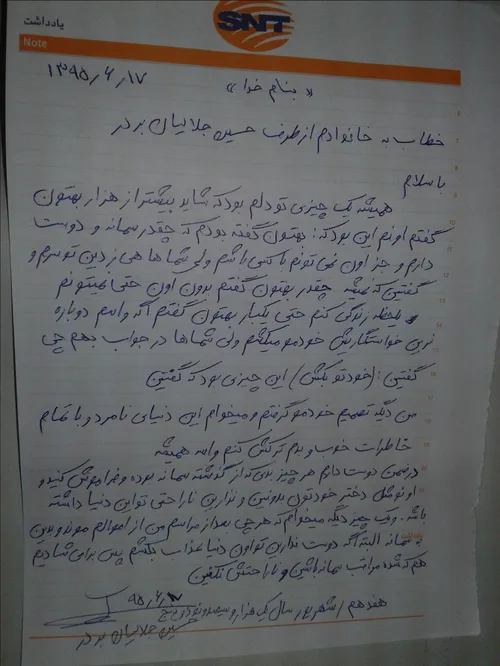 یادداشت
SNT
Note
۱۳۹۵/۶/۱۷
« بنام خدا »
خطاب به خانوادم از طرف حسین جلالیان بردر
با سلام
همیشه یک چیزی تو دلم بود که شاید بیشتر از هزار بهتون
گفتم اونم این بود که: بهتون گفته بودم که چقدر سمانه و دوست
دارم و جز اون نمی تونم با کسی باشم ولی شماها هی زدین تو سرم و
گفتین که نمیشه چقدر بهتون گفتم بدون اون حتی نمیتونم
یلحظه زندگی کنم حتی یکبار بهتون گفتم اگه واسم دوباره
نرین خواستگاریش خودمو میکشم ولی شماها در جواب بهم چی
گفتین: (خودتو بکش) این چیزی بود که گفتین
من دیگه تصمیم خودمو گرفتم و میخوام این دنیای نامرد و با تمام
خاطرات خوب و بدم ترکش کنم واسه همیشه
در ضمن دوست دارم هر چیز بدی که از گذشته سمانه بوده و فراموش کنید و
اونو مثل دختر خودتون بدونین و نذارین ناراحتی تو این دنیا داشته
باشه. و یک چیز دیگه میخوام که هر چی بعد از مراسم من از اموالم موند و بدین
به سمانه البته اگه دوست ندارین تو اون دنیا عذاب بکشم پس برای شادیم
هم که شده مراقب سمانه باشین و ناراحتش نکنین
۹۵/۶/۱۷
هفدهم شهریور سال یک هزار و سیصد و نود و پنج
حسین جلالیان بردر